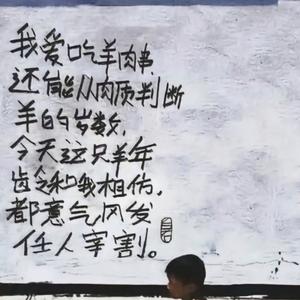 我爱吃羊肉串
还能从肉质判断
羊的岁数,
今天这只羊年
龄和我相仿,
都意气风发
任人宰割。